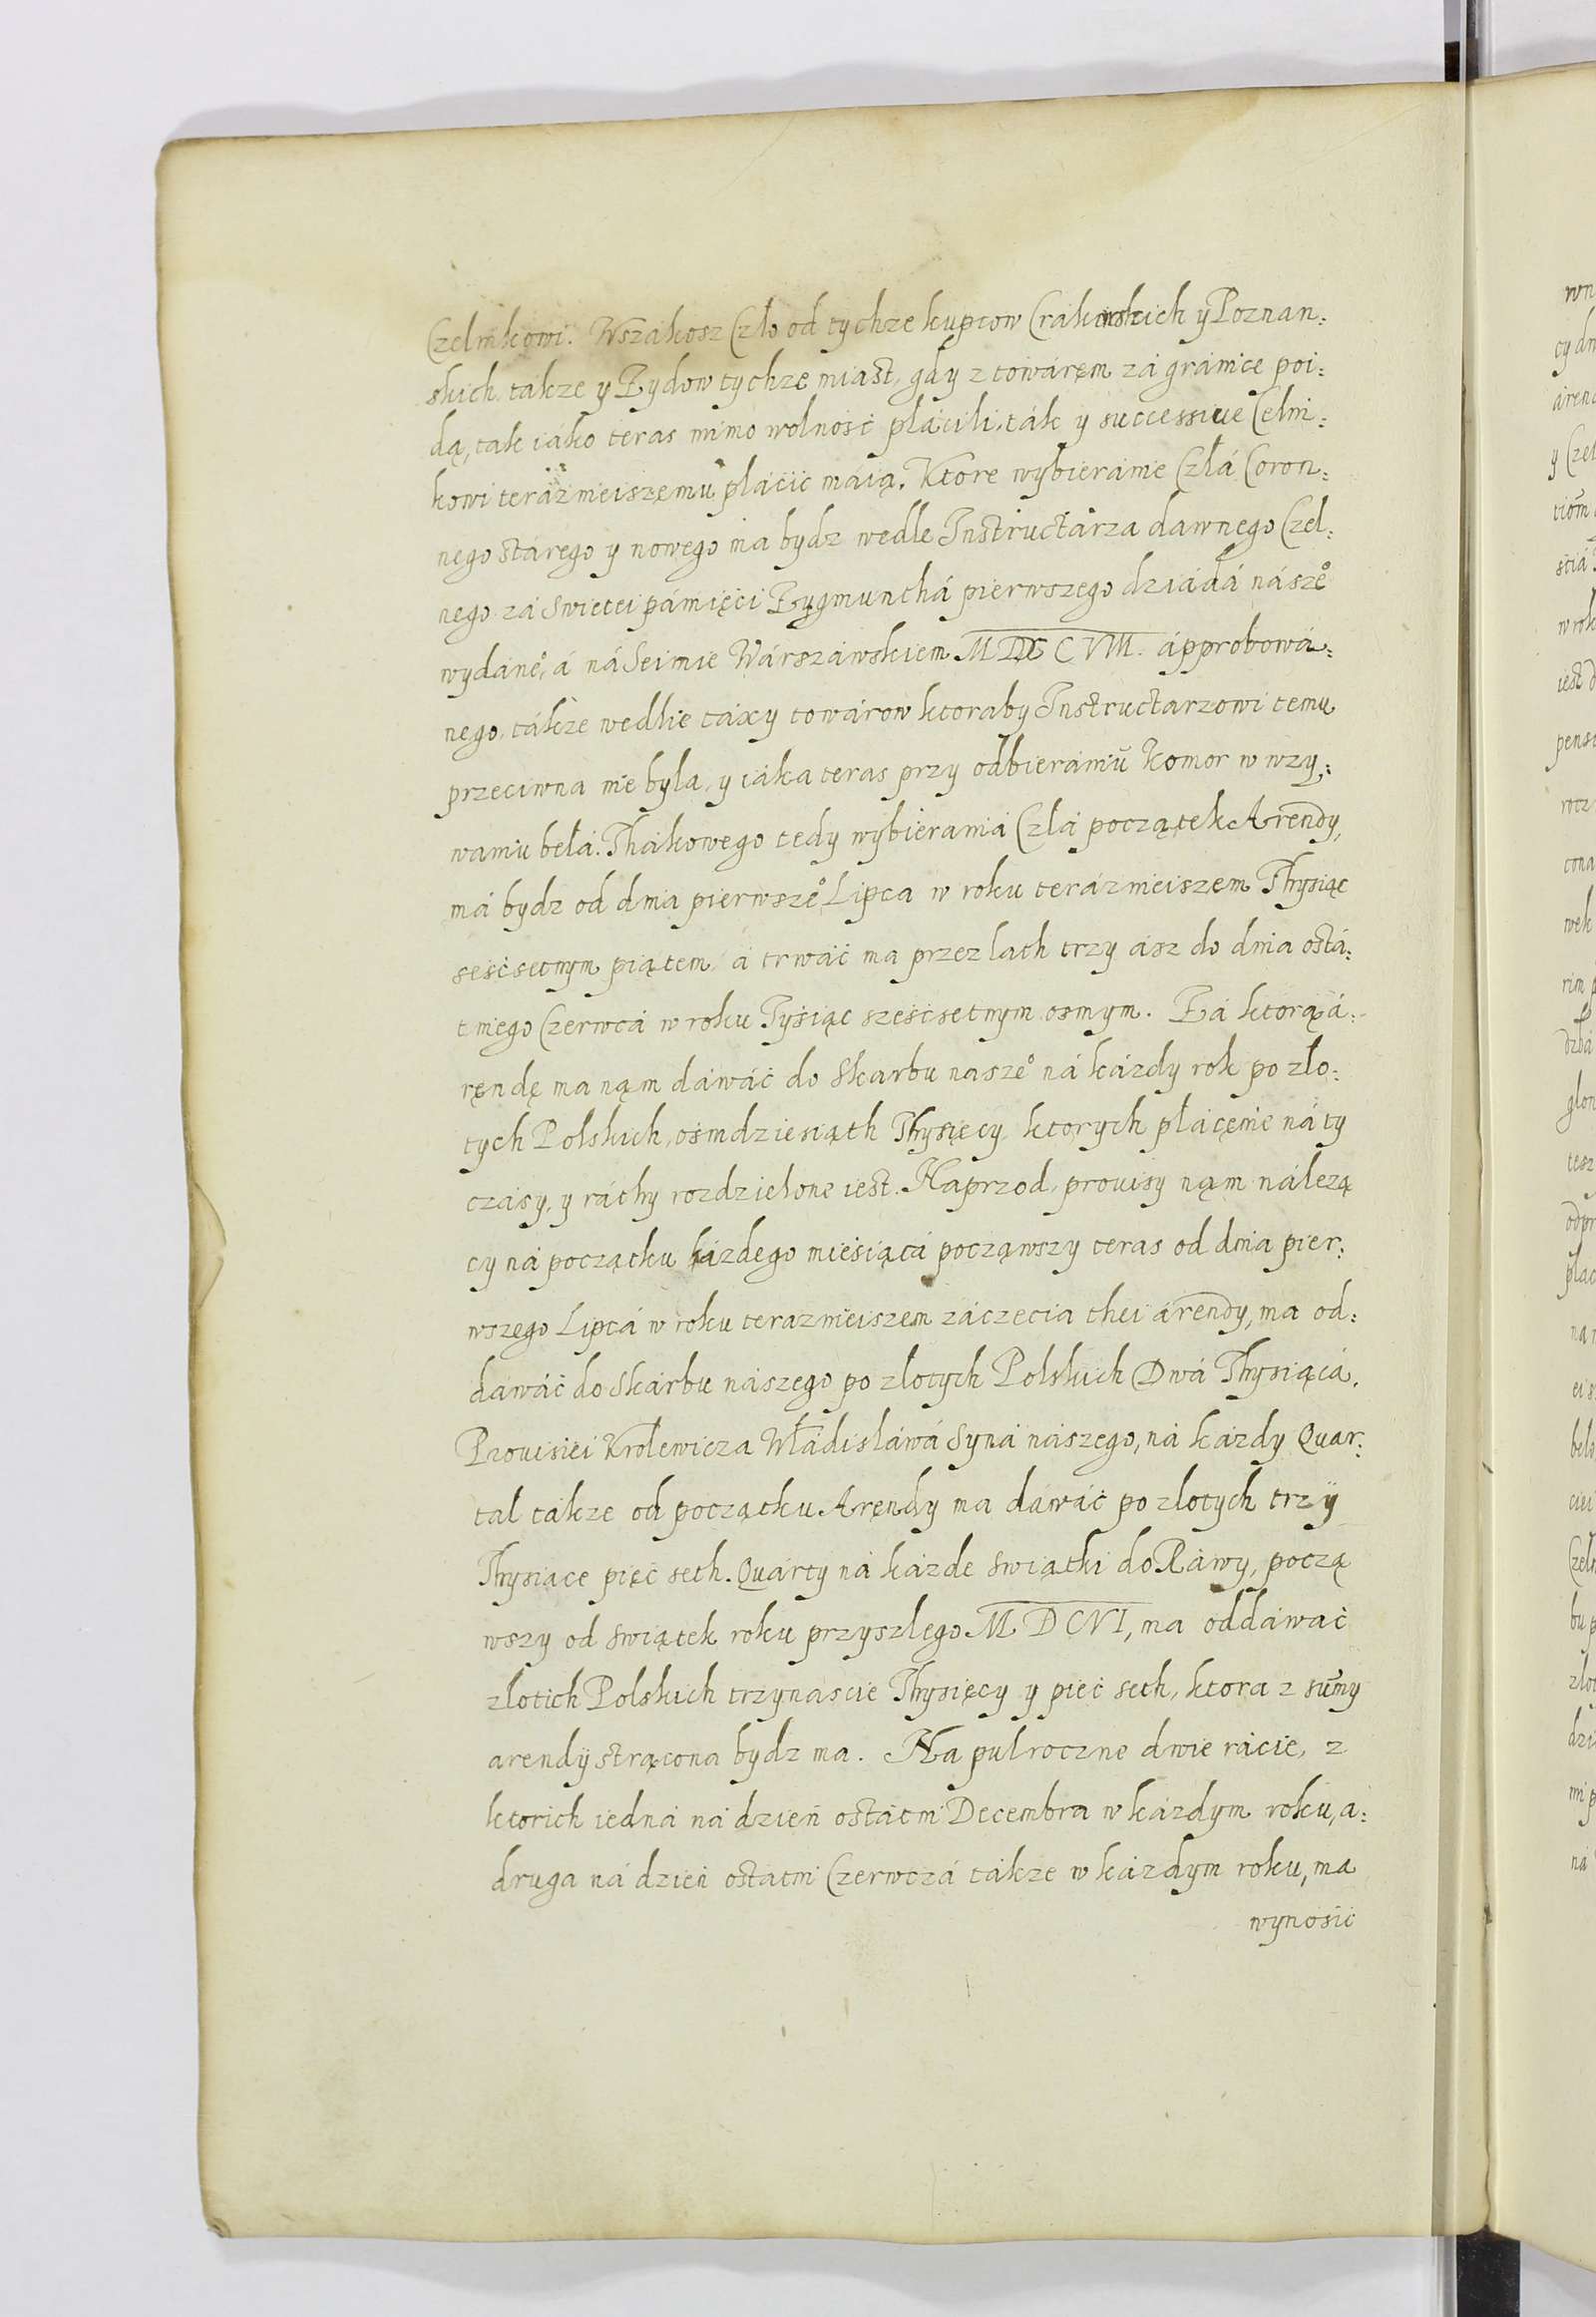 Czelnikowi. Wszakosz Czło od tychze kupcow Crakowskich y Poznan:
skich, takze y Zydow tychze miast, gdy z towarem zá granice poi:
dą, tak iáko teras mimo wolność płácili, ták y successiue Celni:
kowi teráznieiszemu płácić máią. Ktore wybieranie Człá Coron:
nego stárego y nowego ma bydz wedle Instructarza dawnego Czel:
nego zá swietei pámięci Zygmunthá pierwszego dziádá násze°
wydane°, á ná Seimie Wárszáwskiem approbowá:
nego, tákze wedlie táxy towárow ktoraby Instructarzowi temu
przeciwna nie była, y iáka teras przy odbierániu komor w vzy:
waniu belá. Thakowego tedy wybierania Człá początek Arendy,
má bydz od dnia pierwsze° Lipca w roku teráznieiszem Thysiąc
seśćsetnym piątem, á trwáć ma przez lath trzy ász do dnia ostá:
tniego Czerwcá w roku Tysiąc sześćsetnym osmym. Zá ktorą á:
ręndę ma nąm dáwáć do Skarbu nasze° ná kázdy rok po zło:
tych Polskich, ośmdziesiąth Thysięcy, ktorych płácęnie ná ty
czásy, y ráthy rozdzielone iest. Naprzod, prouisy nąm nálezą
cy ná początku kázdego miesiącá począwszy teras od dnia pier:
wszego Lipcá w roku teraznieiszem záczecia thei árendy, ma od:
dáwáć do Skárbu nászego po złotych Polskich Dwá Thysiącá.
Prouisiei Krolewicza Włádisláwá Syná nászego, ná kázdy Quar:
tal tákze od początku Aręndy ma dáwáć po złotych trzy
Thysiące pięć seth. Quárty ná kázde swiątki do Ráwy, począ
wszy od swiątek roku przyszłego MDCVI, ma oddáwáć
złotich Polskich trzynascie Thysięcy y pieć seth, ktora z sum̃y
arendy strącona bydz ma. Na pulroczne dwie rácie, z
ktorich iedná ná dzień ostátni Decembra w kázdym roku, á:
druga ná dzień ostatni Czerwczá tákze w kázdym roku, ma
wynosić